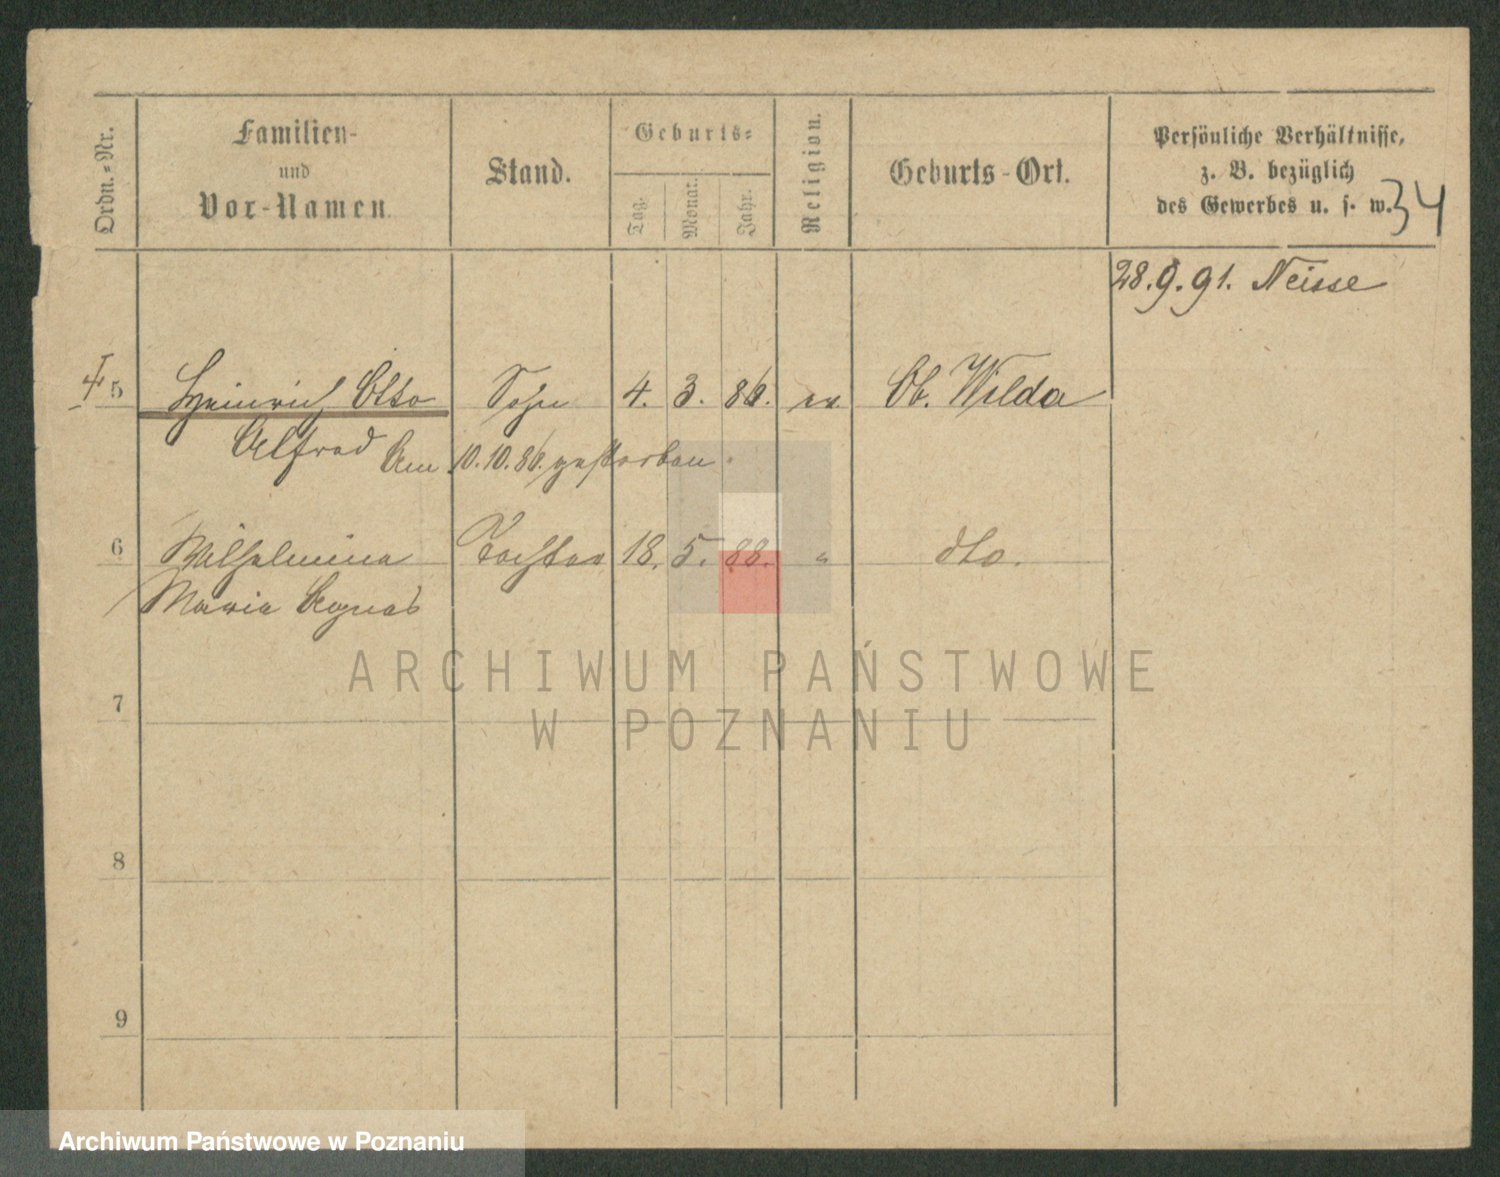 Ordn.-Nr.
Familien-
und
Vor-Namen.
Stand.
Geburts-
Tag.
Monat.
Jahr.
Religion.
Geburts-Ort.
Persönliche Verhältnisse,
z. B. bezüglich
des Gewerbes u. s. w.
34
28.9.91. Neisse
5 Heinrich Otto Sohn 4. 3. 86. ev. Ob. Wilda
Alfred Am 10.10.86. gestorben.
6 Wilhelmine Tochter 18. 5. 88. " dto.
Maria Agnes
7
8
9
ARCHIWUM PAŃSTWOWE
W POZNANIU
Archiwum Państwowe w Poznaniu